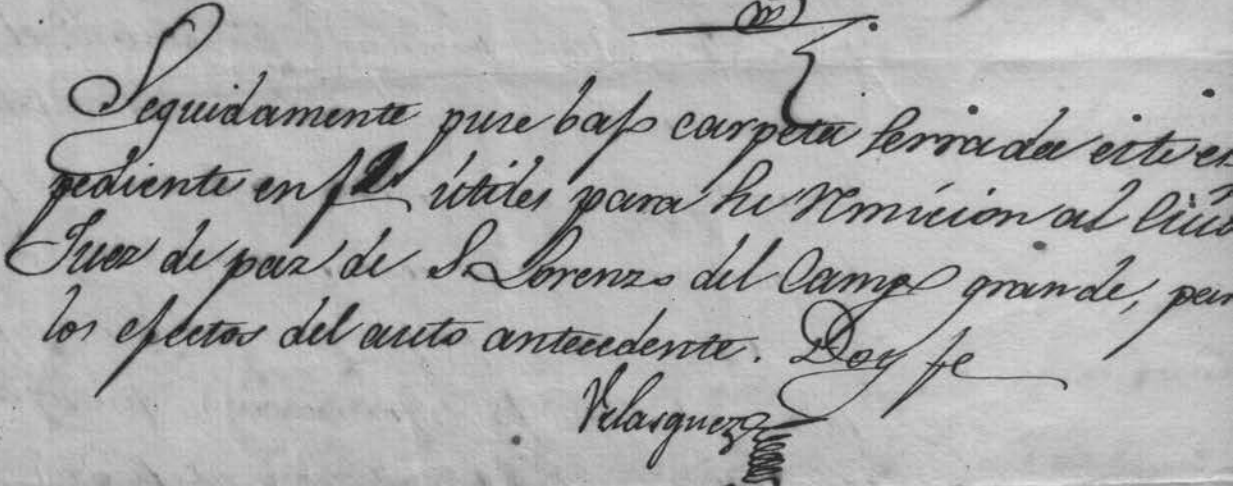 Seguidamente puse bajo carpeta serrada este es
pediente en f 2 útiles para su remicion al Ciudo
Juez de paz de S. Lorenzo del Campo grande, par
los efectos del auto antecedente. Doy fe
Velasquez